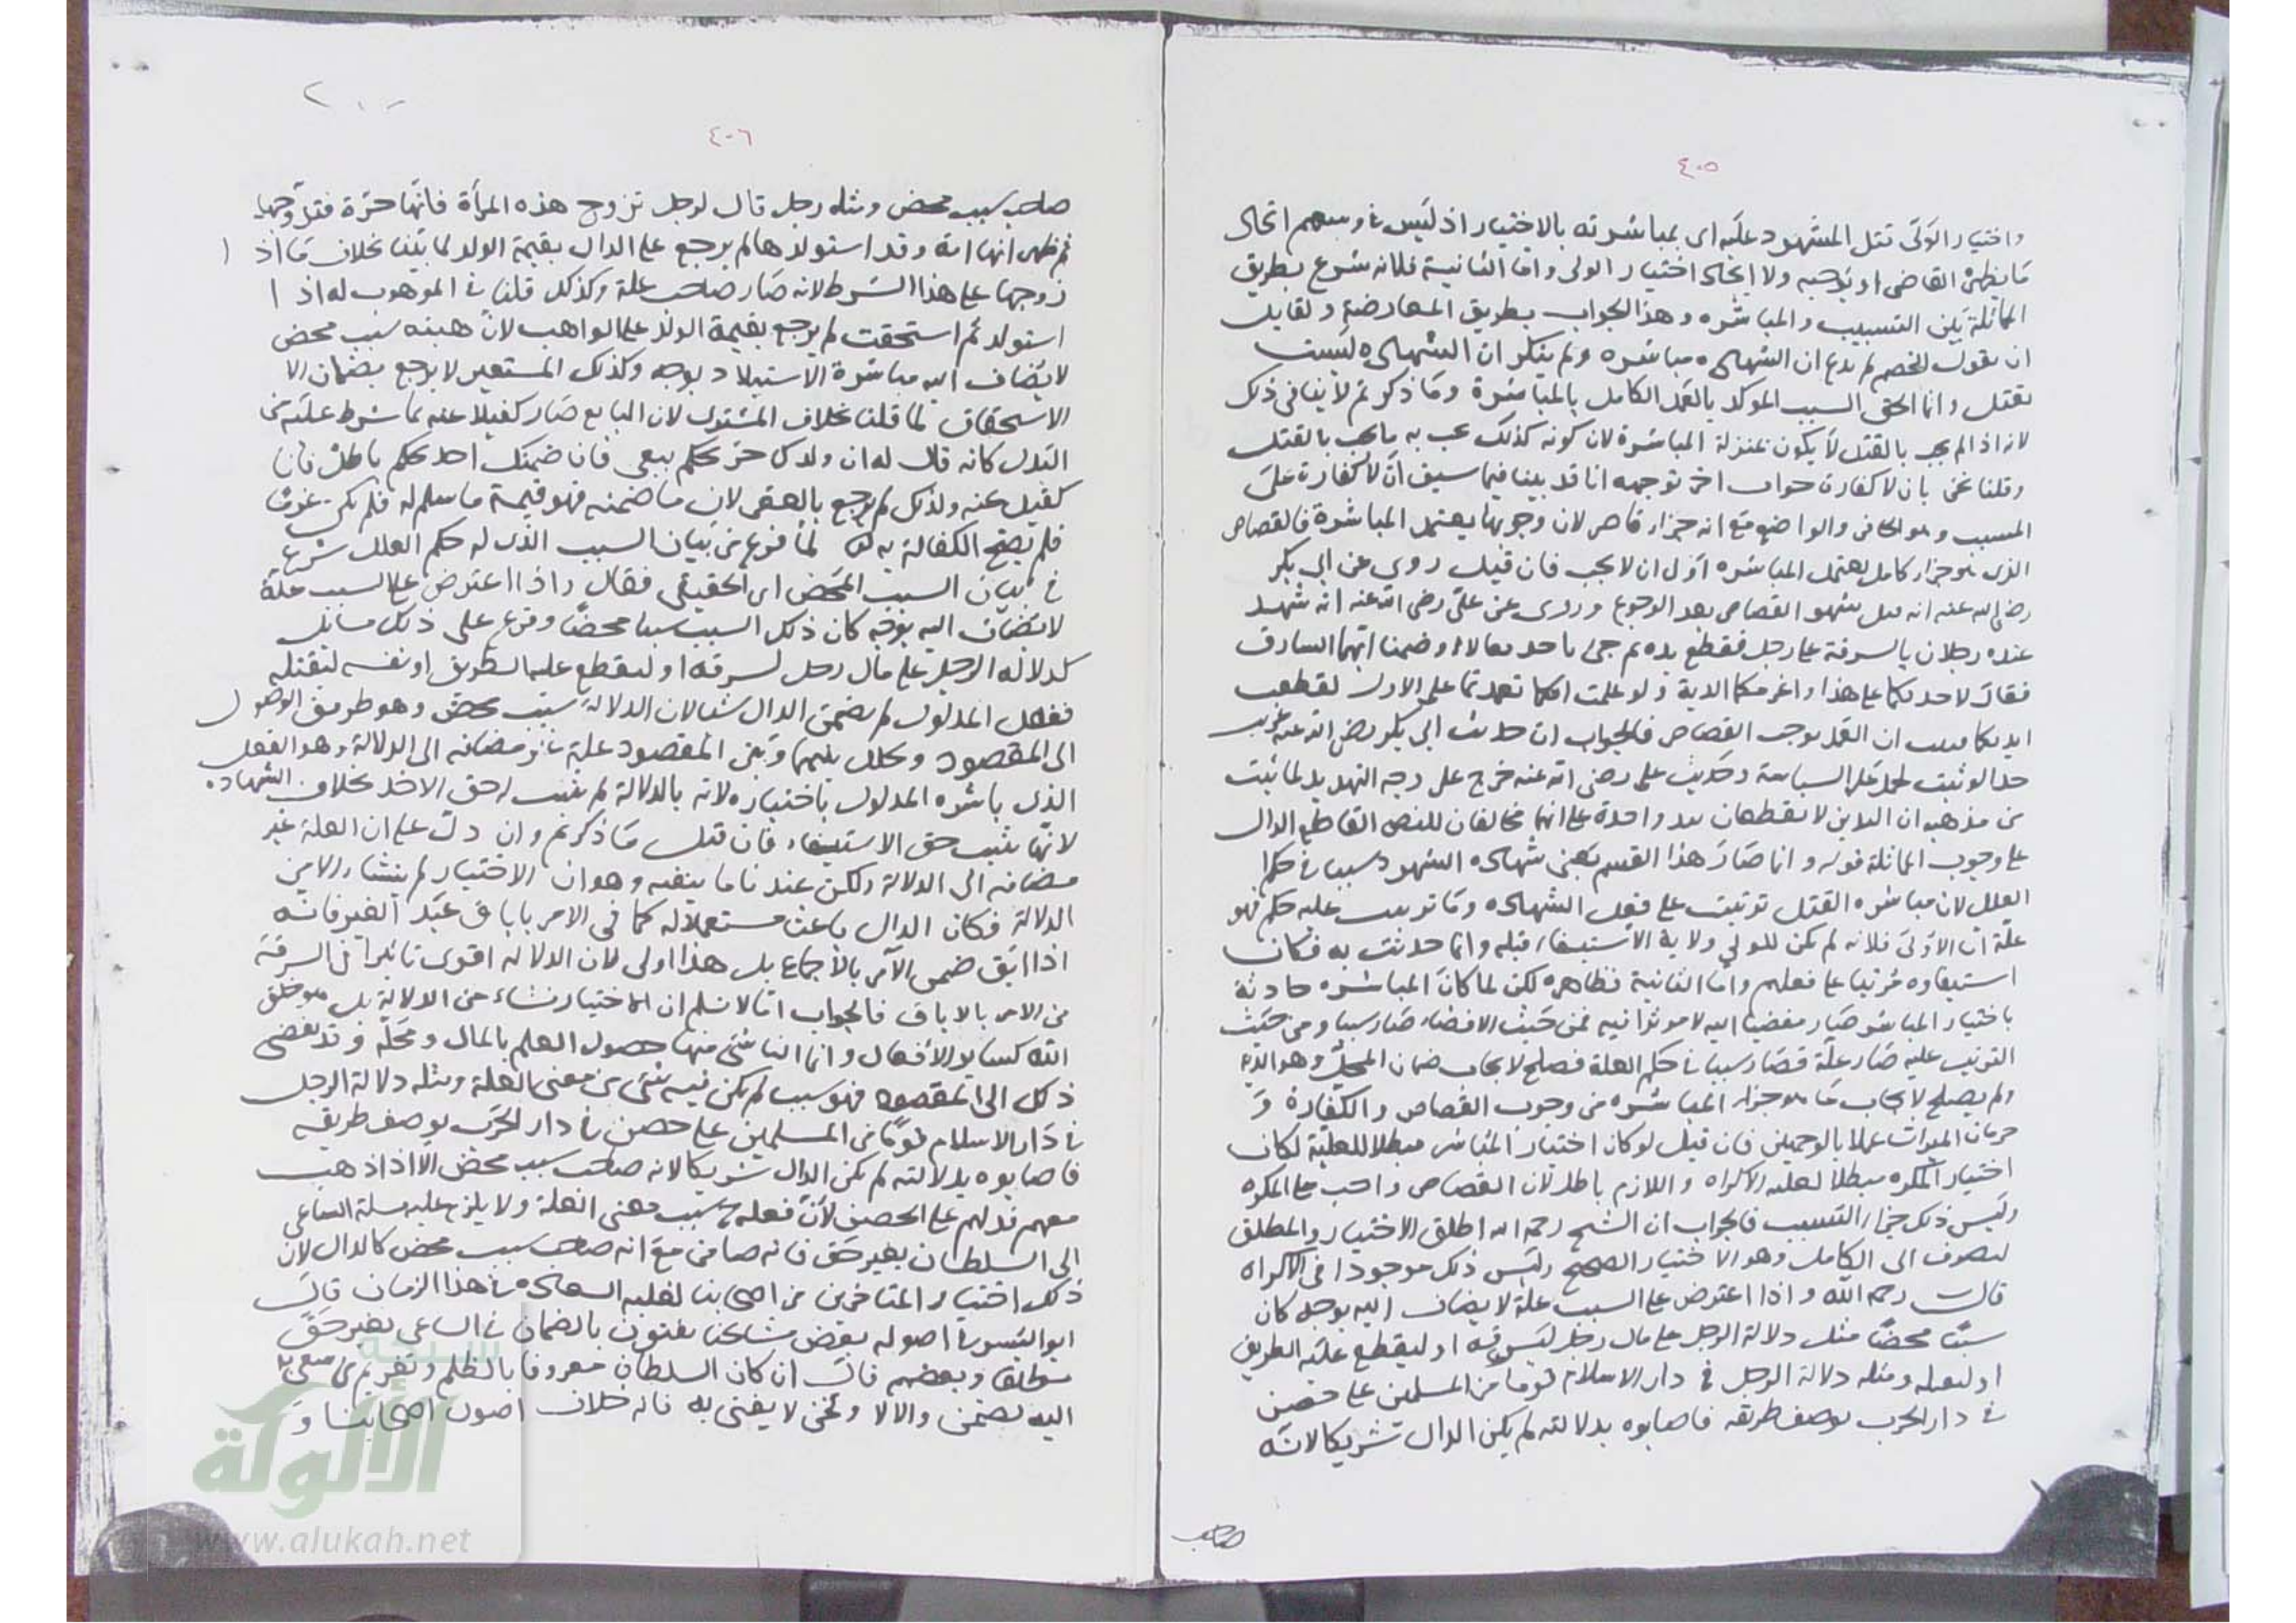 ٤٠٥
واختيار الولى قتل المشهود عليه اى بمباشرته بالاختيار اذ ليس فى وسعهم ايجاد
ما يظهره القاضى او يوجبه ولا ايجاد اختيار الولى واما الثانية فلانه شرع بطريق
المماثلة بين التسبيب والمباشره وهذا الجواب بطريق المعارضة ولقايل
ان يقول الخصم لم يدع ان الشهادة مباشره ولم ينكر ان الشهادة ليست
بقتل وانما الحق السبب الموكد بالعمد الكامل بالمباشرة وما ذكرتم لا ينافى ذلك
لانه اذا لم يجب بالقتل لا يكون بمنزلة المباشرة لان كونه كذلك يجب به ما يجب بالقتل
وقلنا نحن بان لا كفارة جواب اخر توجيهه انا قد بينا فيما سبق ان لا كفارة على
المسبب وهو الحافر والواضع مع انه جزاء قاصر لان وجوبها يعتمد المباشرة فالقصاص
الذى هو جزاء كامل يعتمد المباشره اولى ان لا يجب فان قيل روى عن ابى بكر
رضى الله عنه انه قتل شهود القصاص بعد الرجوع وروى عن على رضى الله عنه انه شهد
عنده رجلان بالسرقة على رجل فقطع يده ثم جئ باحد فقالا اوهمنا انما السارق
فقال لا اصدقكما على هذا واغرمكما الدية ولو علمت انكما تعمدتما على الاول لقطعت
ايديكما فثبت ان العمد يوجب القصاص فالجواب ان حديث ابى بكر رضى الله عنه غريب
جدا لو ثبت لحمل على السياسة وحديث على رضى الله عنه خرج على وجه التهديد لما ثبت
من مذهبه ان اليدين لا تقطعان بيد واحدة على انهما مخالفان للنص القاطع الدال
على وجوب المماثلة قوله وانما صار هذا القسم يعنى شهادة الشهود سببا فى حكم
العلل لان مباشره القتل ترتبت على فعل الشهادة وما ترتب عليه حكم فهو
علة اما الاولى فلانه لم يكن للولى ولاية الاستيفاء قبله وانما حدثت به فكان
استيفاوه مرتبا على فعلهم واما الثانية فظاهره لكن لما كان المباشره حادثة
باختيار المباشر صار مفضيا اليه لا موثرا فيه فمن حيث الافضاء صار سببا ومن حيث
الترتب عليه صار علة فصار سببا فى حكم العلة فصلح لايجاب ضمان المحل وهو الدية
ولم يصلح لايجاب ما هو جزاء المباشره من وجوب القصاص والكفارة و
حرمان الميراث عملا بالوجهين فان قيل لو كان اختيار المباشر مبطلا للعلية لكان
اختيار المكره مبطلا لعلية الاكراه واللازم باطل لان القصاص واجب على المكره
وليس ذلك جزاء التسبيب فالجواب ان الشيخ رحمه الله اطلق الاختيار والمطلق
ينصرف الى الكامل وهو الاختيار الصحيح وليس ذلك موجودا فى الاكراه
قال رحمه الله واذا اعترض على السبب علة لا يضاف اليه بوجه كان
سببا محضا مثل دلالة الرجل على مال رجل ليسرقه او ليقطع عليه الطريق
او ليقتله ومثله دلالة الرجل فى دار الاسلام قوما من المسلمين على حصن
فى دار الحرب بوصف طريقه فاصابوه بدلالته لم يكن الدال شريكا لانه
صاحب
٤٠٦
صاحب سبب محض ومثله رجل قال لرجل تزوج هذه المرأة فانها حرة فتزوجها
ثم ظهر انها امة وقد استولدها لم يرجع على الدال بقيمة الولد لما بينا بخلاف ما اذا
زوجها على هذا الشرط لانه صار صاحب علة وكذلك قلنا فى الموهوب له اذا
استولد ثم استحقت لم يرجع بقيمة الولد على الواهب لان هبته سبب محض
لا يضاف اليه مباشرة الاستيلاد بوجه وكذلك المستعير لا يرجع بضمان الا
الاستحقاق لما قلنا بخلاف المشترى لان البايع صار كفيلا عنه بما شرط عليه من
البدل كانه قال له ان ولدك حر بحكم بيعى فان ضمنك احد بحكم باطل فانا
كفيل عنه ولذلك لم يرجع بالعقر لان ما ضمنه فهو قيمة ما سلم له فلم يكن غرما
فلم يصح الكفالة به لما فرغ من بيان السبب الذى له حكم العلل شرع
فى بيان السبب المحض اى الحقيقى فقال واذا اعترض على السبب علة
لا يضاف اليه بوجه كان ذلك السبب سببا محضا وفرع على ذلك مسائل
كدلالة الرجل على مال رجل ليسرقه او ليقطع عليه الطريق او نفسه ليقتله
ففعل المدلول لم يضمن الدال شيئا لان الدلالة سبب محض وهو طريق الوصول
الى المقصود وتخلل بينها وبين المقصود علة غير مضافه الى الدلالة وهو الفعل
الذى باشره المدلول باختياره لانه بالدلالة لم يثبت له حق الاخذ بخلاف الشهاده
لانها يثبت حق الاستيفاء فان قيل ما ذكرتم وان دل على ان العلة غير
مضافه الى الدلالة ولكن عندنا ما ينفيه وهو ان الاختيار لم ينشاء الا من
الدلالة فكان الدال باعثا مستعملا له كما فى الامر باباق عبد الغير فانه
اذا ابق ضمن الآمر بالاجماع بل هذا اولى لان الدلالة اقوى تاثيرا فى السرقة
من الامر بالاباق فالجواب انا لا نسلم ان الاختيار نشاء من الدلالة بل هو خلق
الله كساير الافعال وانما الناشئ منها حصول العلم بالمال ومحله وقد يفضى
ذلك الى المقصود فهو سبب لم يكن فيه شئ من معنى العلة ومثله دلالة الرجل
فى دار الاسلام قوما من المسلمين على حصن فى دار الحرب بوصف طريقه
فاصابوه بدلالته لم يكن الدال شريكا لانه صاحب سبب محض الا اذا ذهب
معهم فدلهم على الحصن لان فعله سبب معنى العلة ولا يلزم عليه مسئلة الساعى
الى السلطان بغير حق فانه ضامن مع انه صاحب سبب محض كالدال لان
ذلك اختيار المتاخرين من اصحابنا لغلبة السعاة فى هذا الزمان قال
ابو اليسر فى اصوله بعض مشايخنا يفتون بالضمان فى الساعى بغير حق
مطلقا وبعضهم قال ان كان السلطان معروفا بالظلم وتغريم من سعى به
اليه يضمن والا لا ونحن لا يفتى به فانه خلاف اصول اصحابنا و
شبكة
الألوكة
www.alukah.net